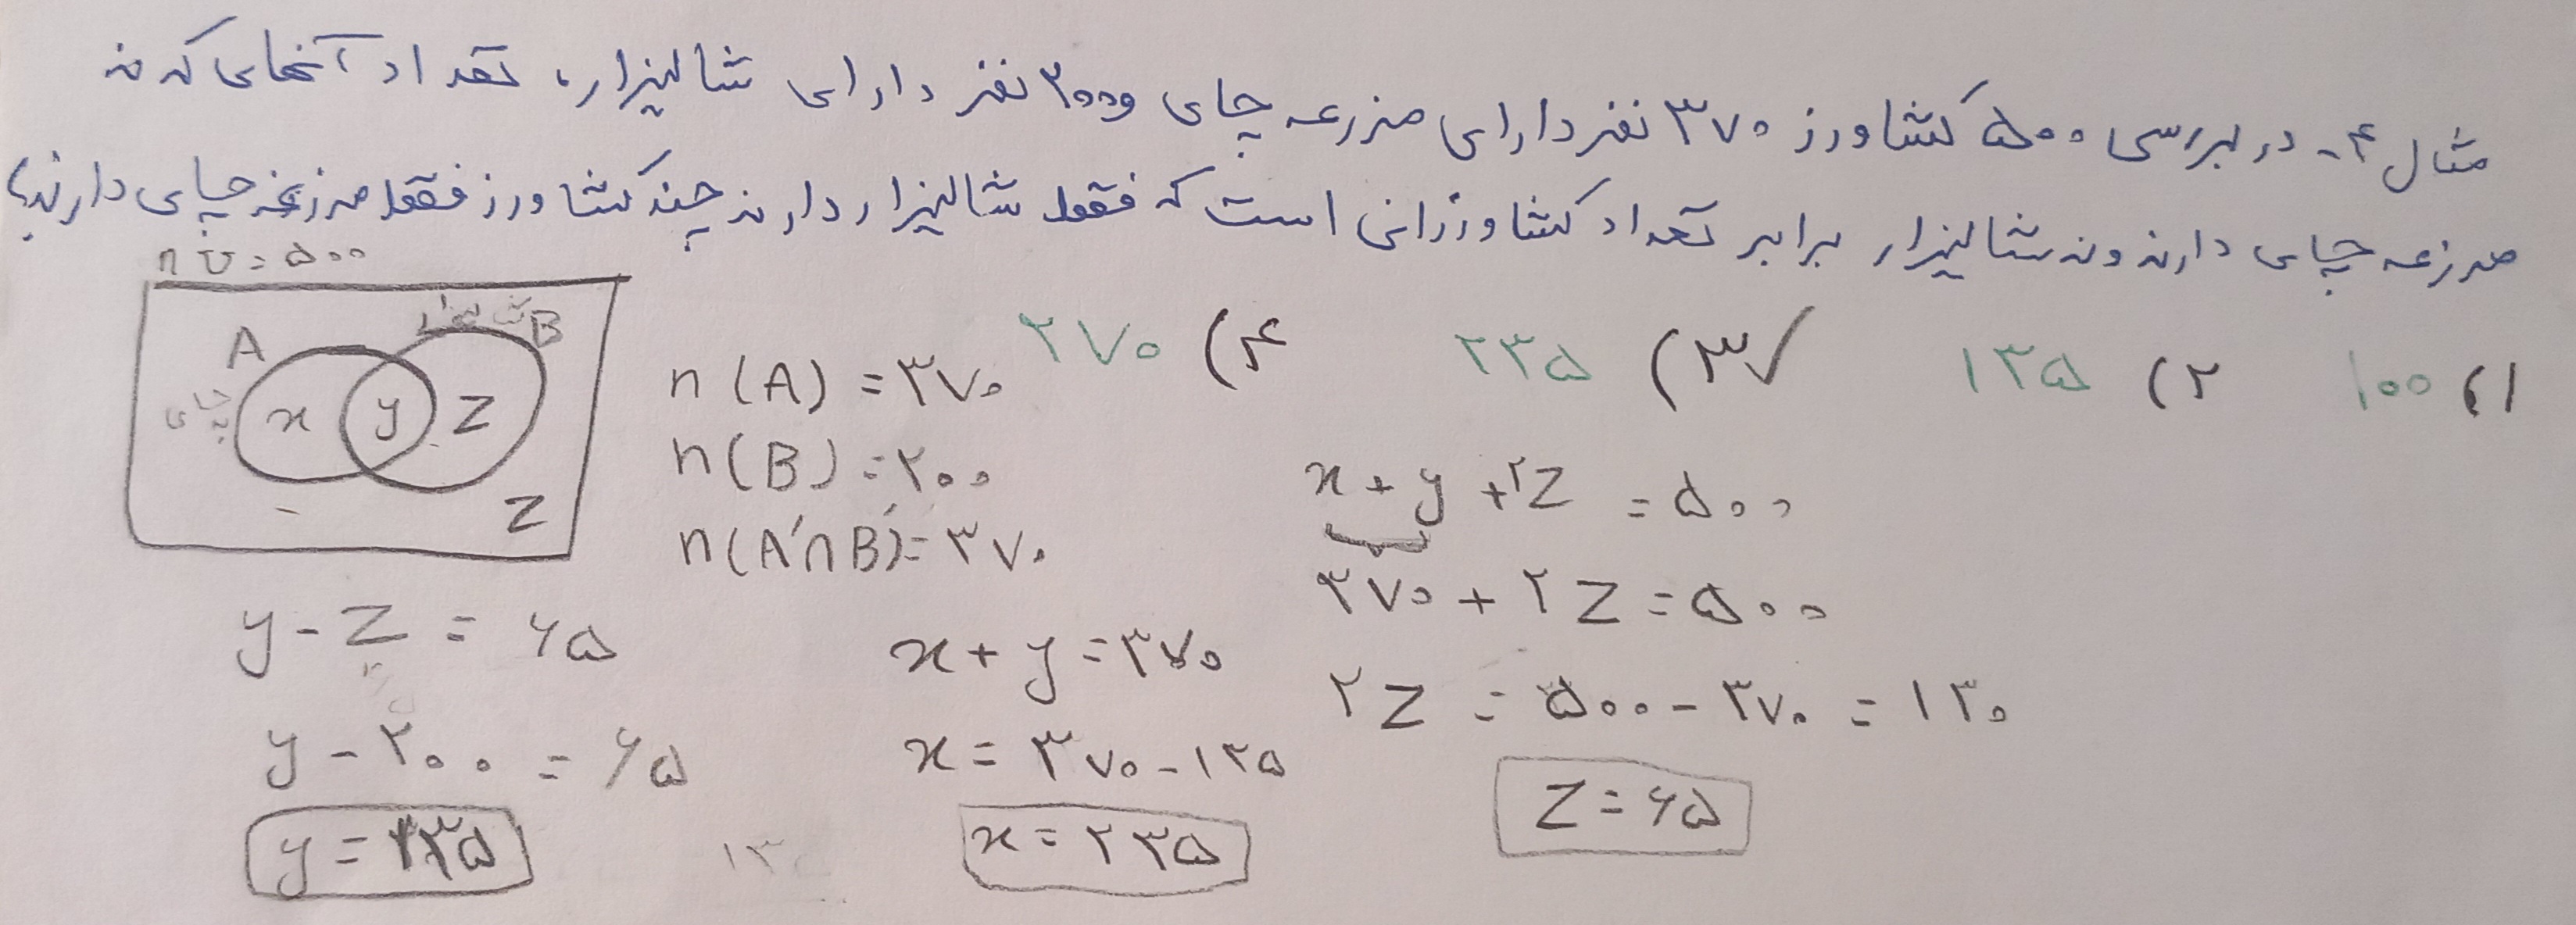 مثال ۴- در بررسی ۵۰۰ کشاورز ۳۷۰ نفر دارای مزرعه چای و ۲۰۰ نفر دارای شالیزار، تعداد آنهای که نه
مزرعه چای دارند و نه شالیزار برابر تعداد کشاورزانی است که فقط شالیزار دارند چند کشاورز فقط مزرعه چای دارند؟
۱) ۱۰۰ ۲) ۱۳۵ ۳) ۲۳۵ ✓ ۴) ۲۷۰
n U = ۵۰۰
A B شالیزار
چای x y z
z
n(A) = ۳۷۰
n(B) = ۲۰۰
n(A'∩B') = ۳۷۰
x + y + ۲z = ۵۰۰
۳۷۰ + ۲z = ۵۰۰
۲z = ۵۰۰ - ۳۷۰ = ۱۳۰
z = ۶۵
x + y = ۳۷۰
x = ۳۷۰ - ۱۳۵
x = ۲۳۵
y - z = ۶۵
y - ۲۰۰ = ۶۵
y = ۱۳۵
۱۳